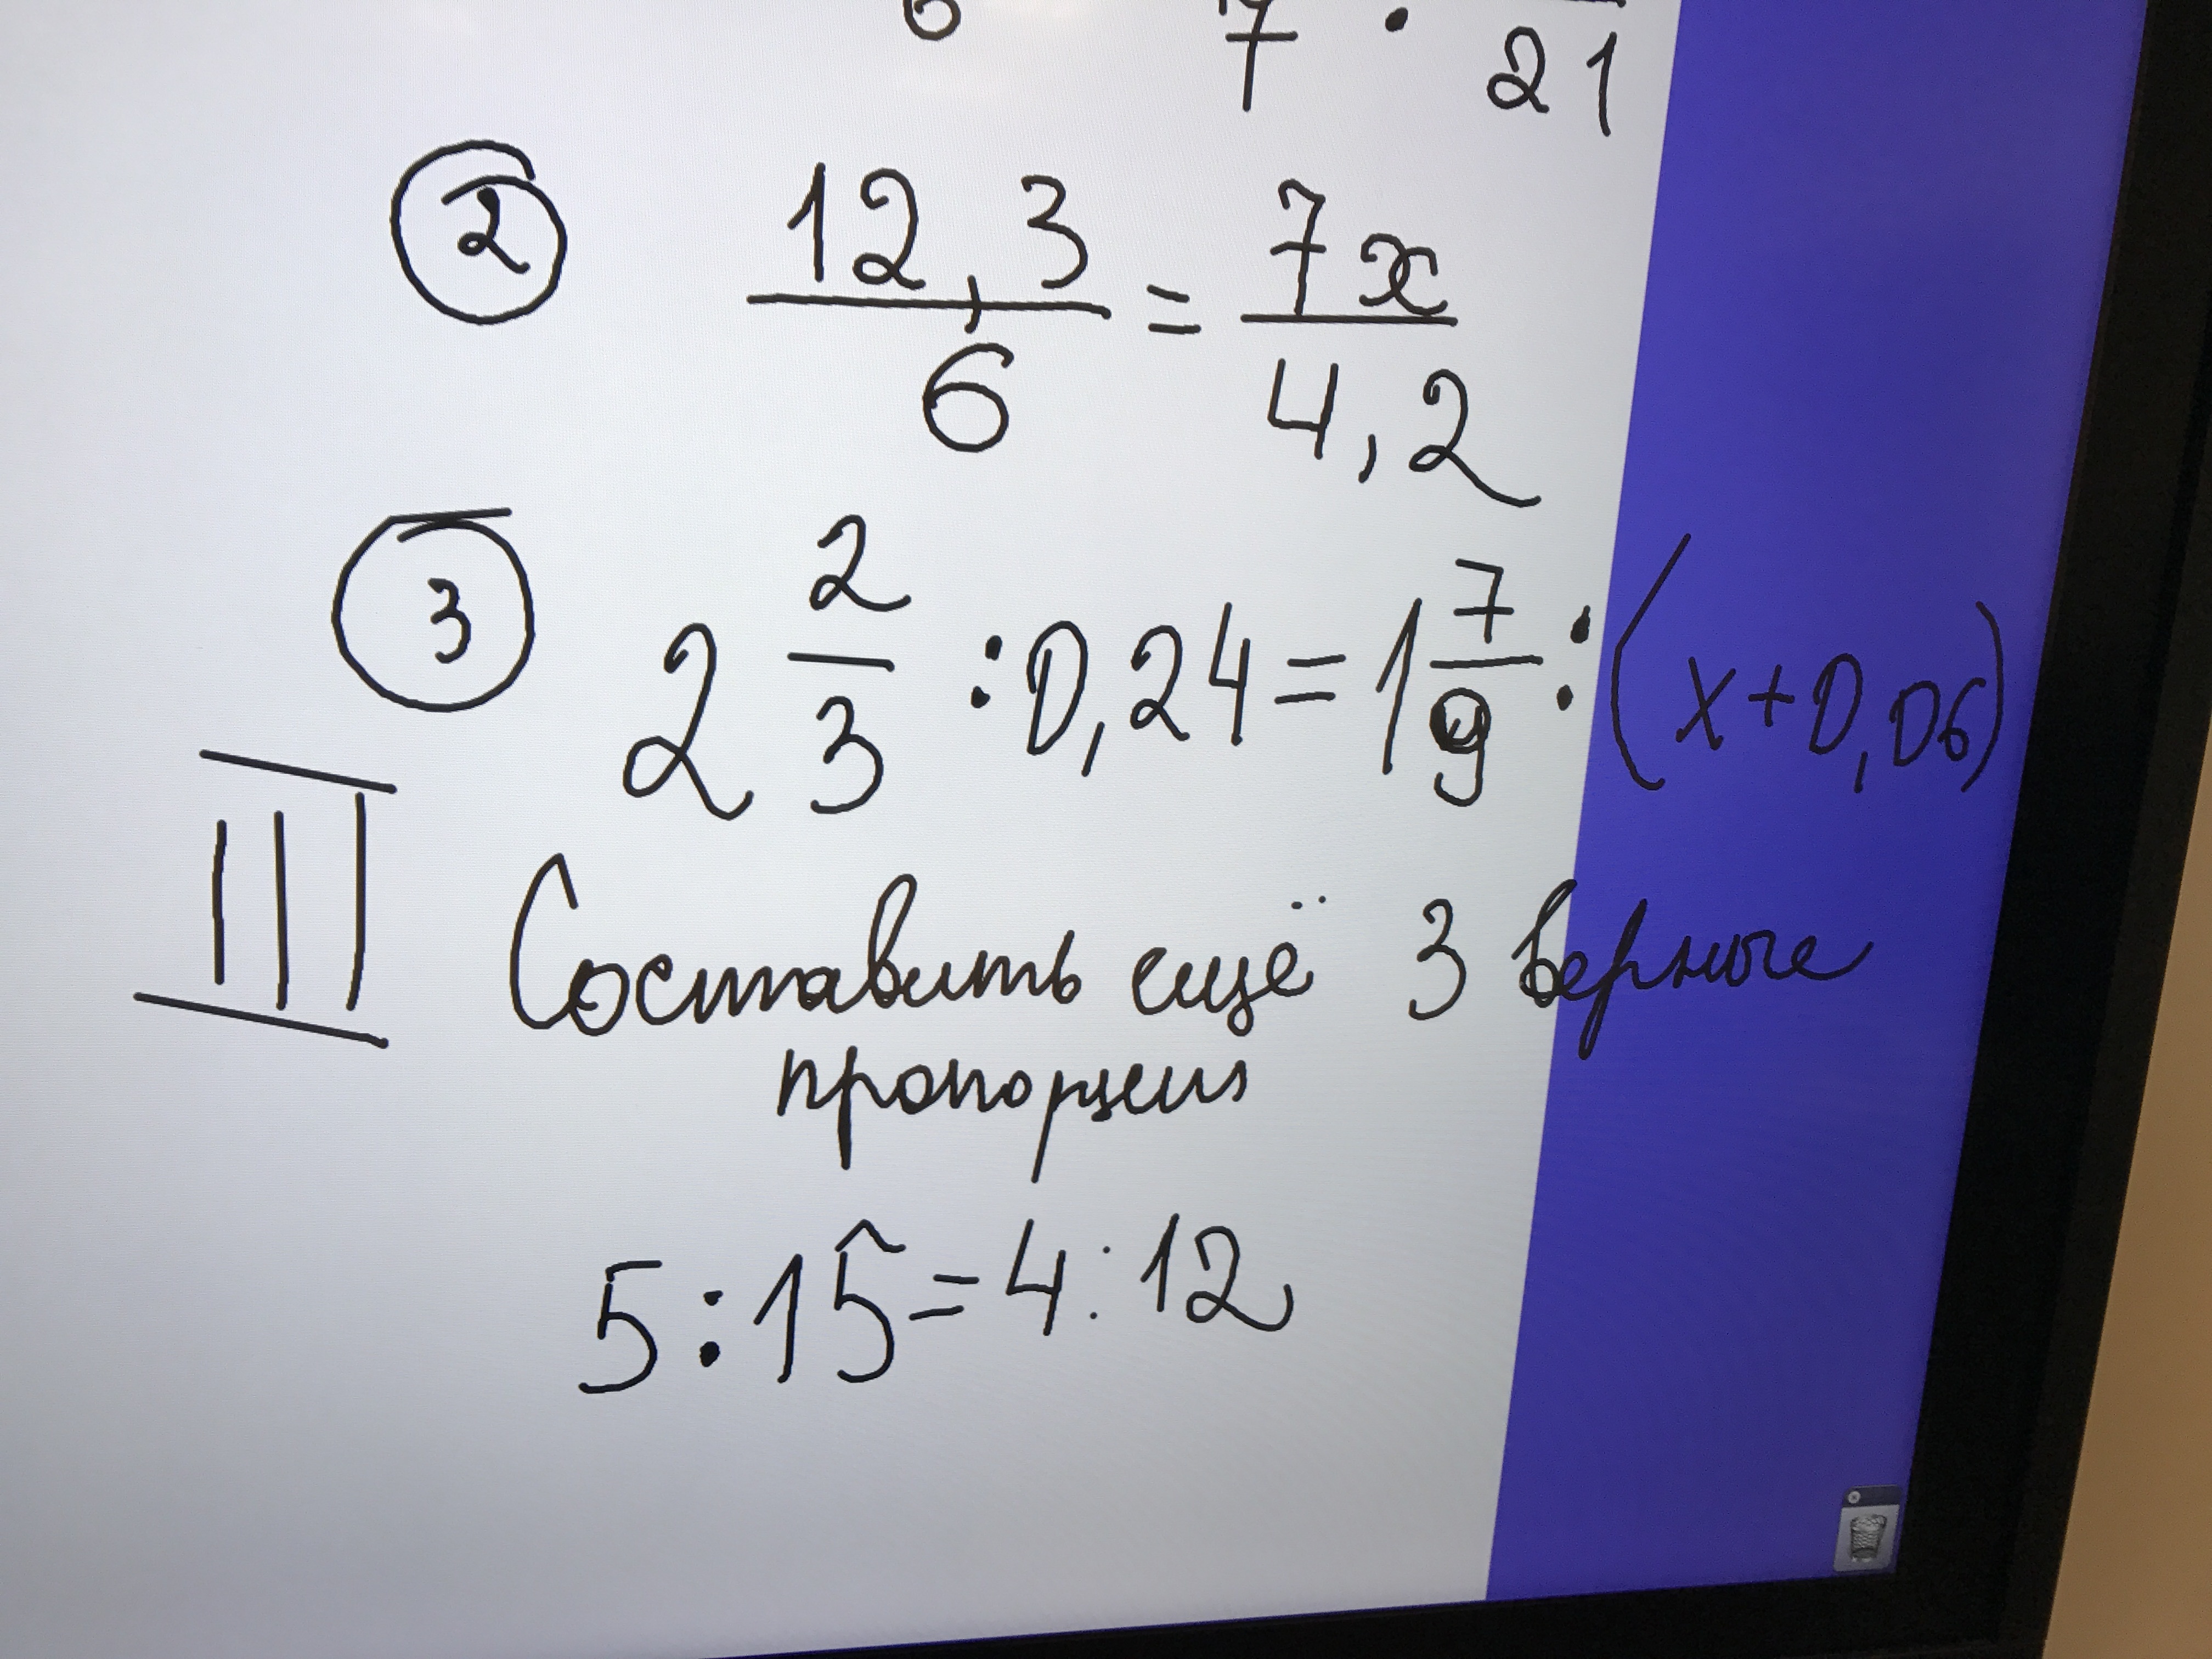 7 : 21
② 12,3/6 = 7x/4,2
③ 2 2/3 : 0,24 = 1 7/9 : (x+0,06)
III Составить ещё 3 верные
пропорции
5:15=4:12